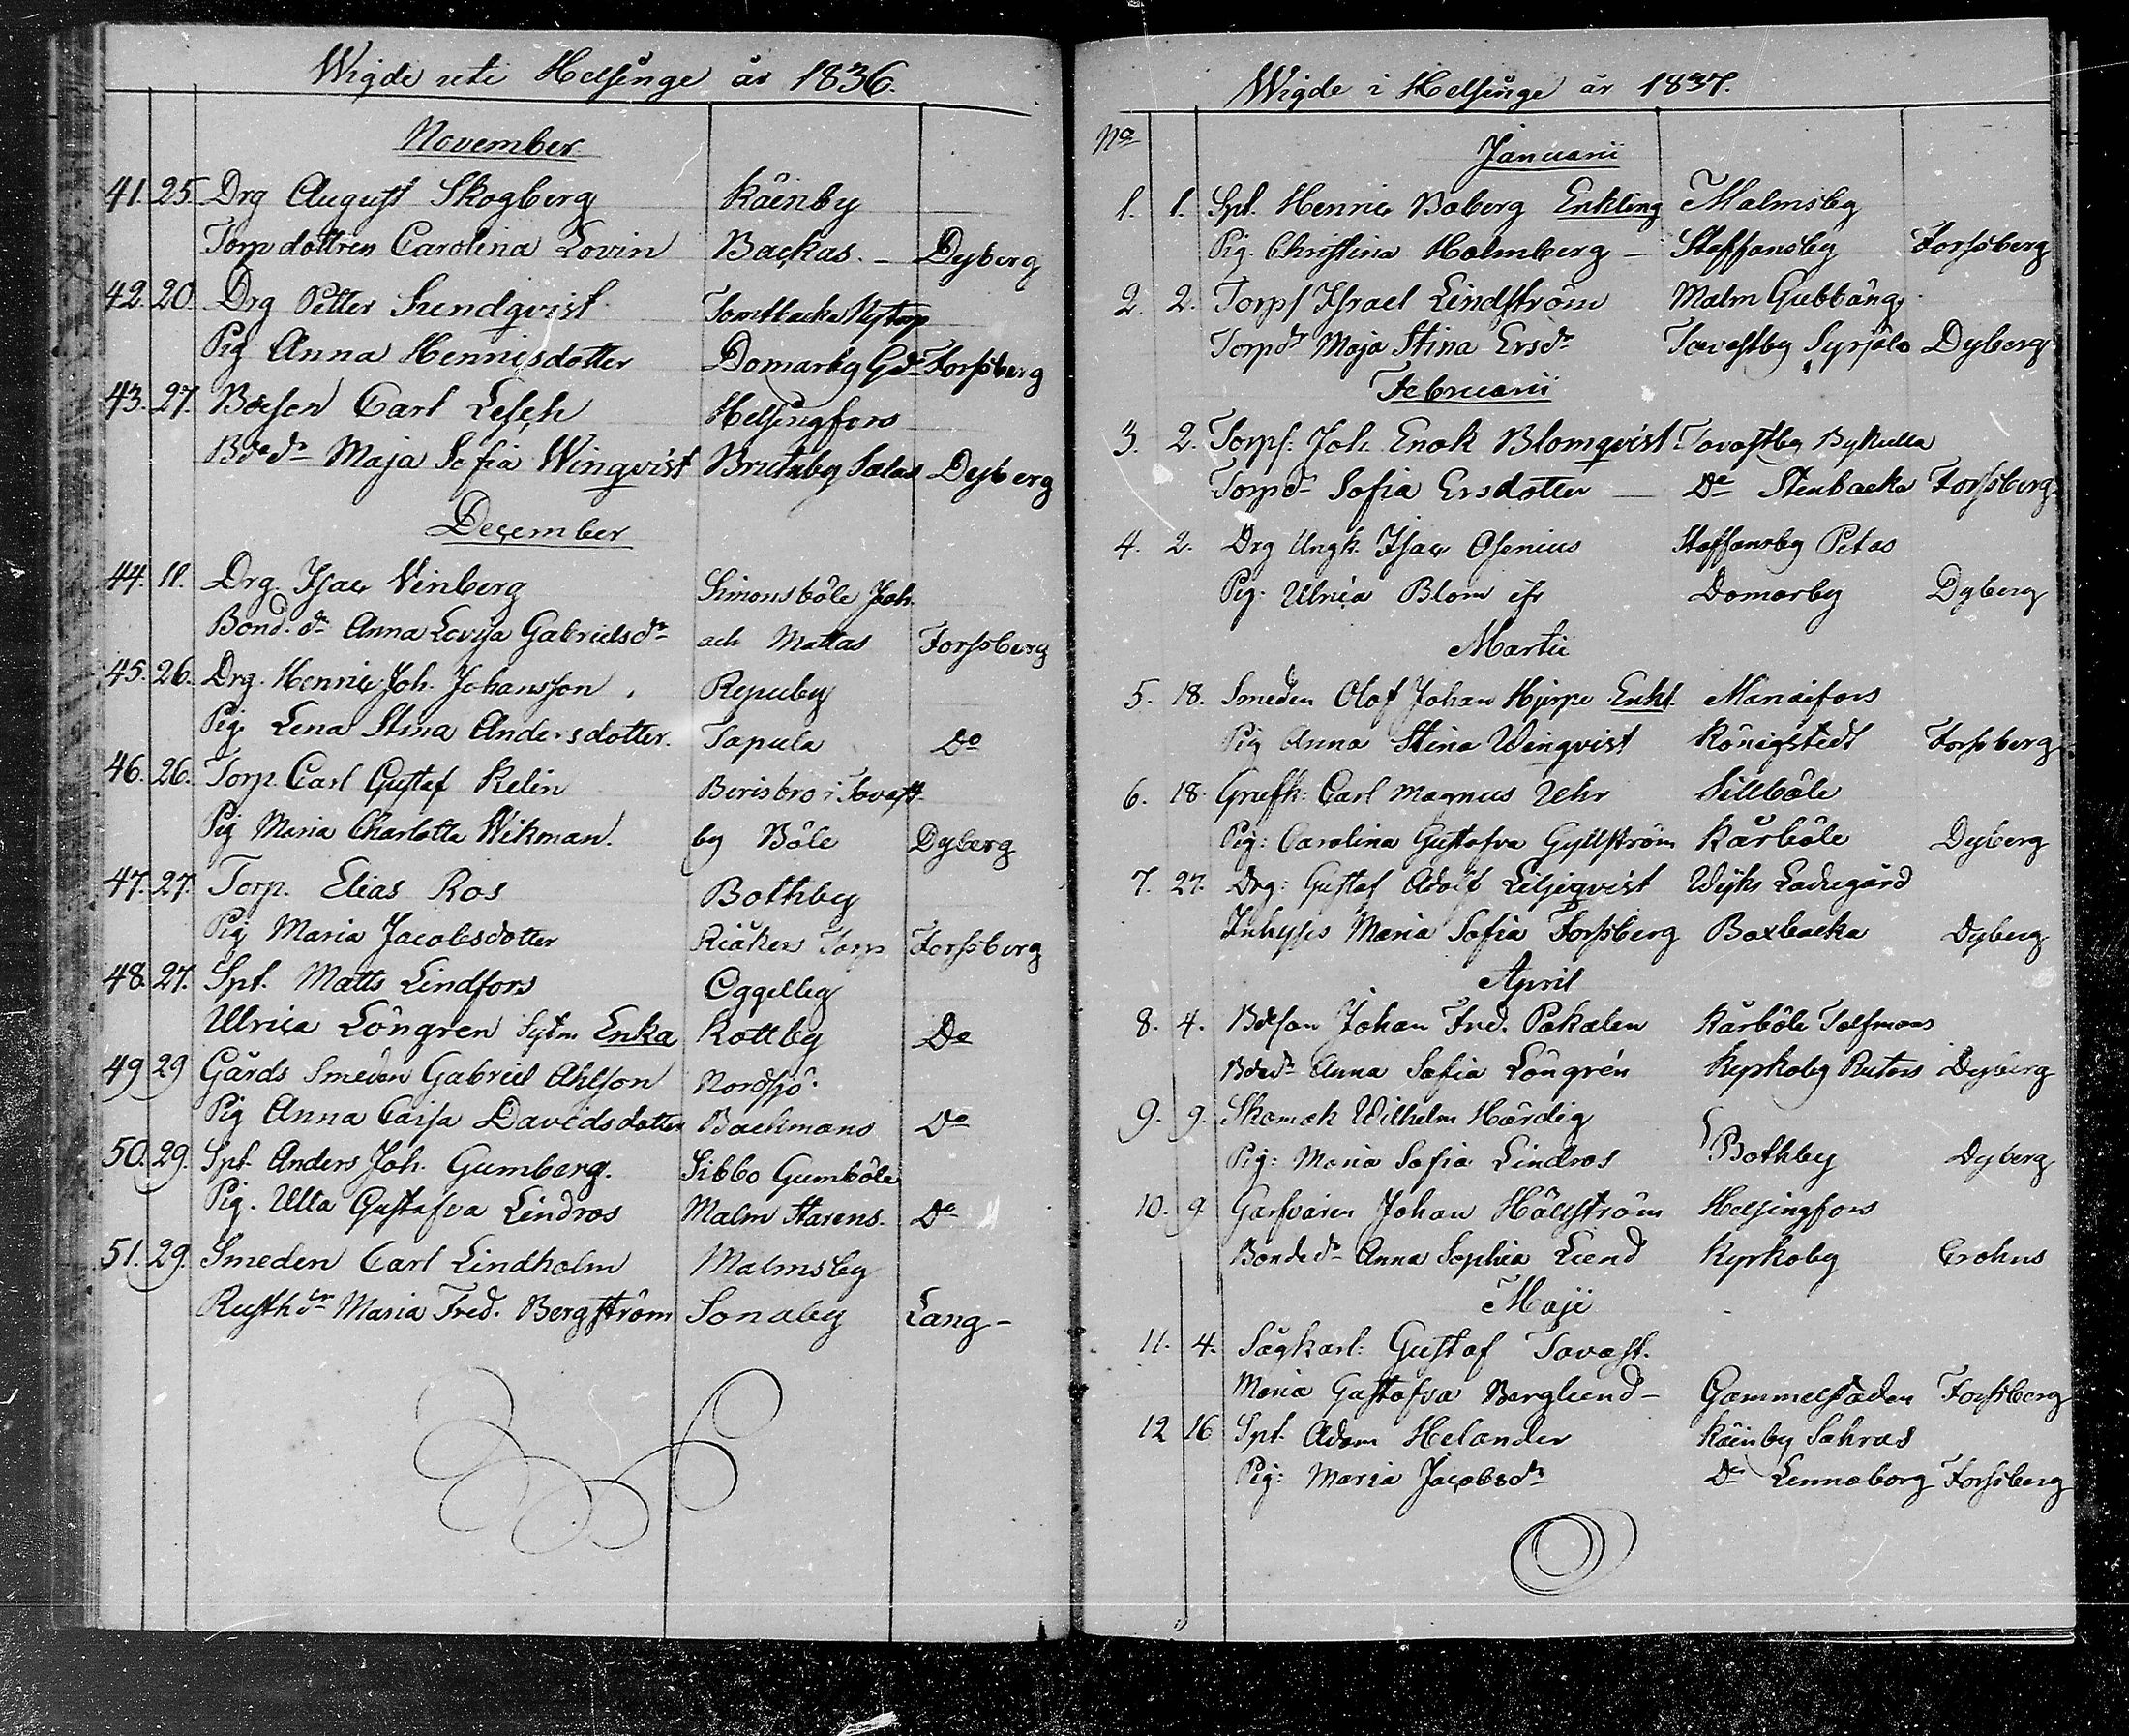 Wigde uti Helsinge år 1836.
November
41. 25. Drg August Skogberg Råinby
Torpdottren Carolina Lovin Backas. – Dyberg
42. 20. Drg Petter Sundqvist Tomtbacka Nytorp
Pig Anna Henricsdotter Domarby Gd Forssberg
43. 27. Bdeson Carl Lesch Helsingfors
Bdedr Maja Sofia Winqvist Brutuby Dyberg
December
44. 11. Drg Isac Vinberg Simonsböle Joh.
Bond. dr Anna Lovisa Gabrielsdr och Mattas Forssberg
45. 26. Drg. Henric Joh. Johansson. Repuby
Pig. Lena Stina Andersdotter. Tapula Do
46. 26. Torp. Carl Gustaf Relin Berisbro i Tavast
Pig Maria Charlotta Wikman. by Böle Dyberg
47. 27. Torp. Elias Ros Bothby
Pig Maria Jacobsdotter Riåkers Torp Forssberg
48. 27. Spt. Matts Lindfors Oggelby
Ulrica Löngren Sytm Enka Kottby Do
49 29 Gårds Smeden Gabriel Ahlson Nordsjö.
Pig Anna Caisa Davidsdotter Backmans Do
50. 29. Spt. Anders Joh. Gumberg. Sibbo Gumböle
Pig. Ulla Gustafva Lindros Malm Starens. Do
51. 29. Smeden Carl Lindholm Malmsby
Rusthdr Maria Fred. Bergström Sonaby Lang –
Wigde i Helsinge år 1837.
No
Januarii
1. 1. Spt. Henric Boberg Enkling Malmsby
Pig. Christina Holmberg – Staffansby Forssberg
2. 2. Torps Israel Lindström Malm Gubbäng
Torpdr Maja Stina Ersdr Tavastby Syrjälä Dyberg
Februarii
3. 2. Torps: Joh. Enok Blomqvist Tavastby Bykulla
Torpdr Sofia Ersdotter – Do Stenbacka Forssberg
4. 2. Drg Ungk. Isac Osenius Staffansby Petas
Pig: Ulrica Blom Domarby Dyberg
Martii
5. 18. Smeden Olof Johan Hjerpe Enkl. Mariæfors
Pig Anna Stina Winqvist Königstedt Forssberg
6. 18. Grufk: Carl Magnus Uhr Sillböle
Pig: Carolina Gustafva Gyllström Kårböle Dyberg
7. 27. Drg: Gustaf Adolf Liljeqvist Wijks Ladugård
Inhyses Maria Sofia Forssberg Boxbacka Dyberg
April
8. 4. Bdeson Johan Fred. Pakalen Kårböle Tolfmans
Bdedr Anna Sofia Löngrén Kyrkoby Rutars Dyberg
9. 9. Skomak Wilhelm Hårdig
Pig: Maria Sofia Lindros Bothby Dyberg
10. 9. Garfvaren Johan Hällström Helsingfors
Bondedr Anna Sophia Lund Kyrkoby Crohns
Maji
11. 4. Sågkarl: Gustaf Tavast.
Maria Gustafva Berglund – Gammelstaden Forssberg
12 16 Spt. Adam Helander Råinby Sahras
Pig: Maria Jacobsdr Do Lennaborg Forssberg